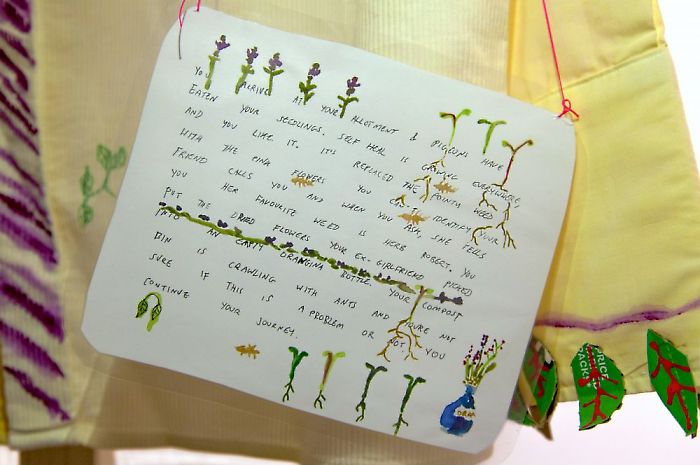 YOU ARRIVE AT YOUR ALLOTMENT & PIGEONS HAVE
EATEN YOUR SEEDLINGS. SELF HEAL IS GROWING EVERYWHERE,
AND YOU LIKE IT. IT'S REPLACED THE POINTY WEED
WITH THE PINK FLOWERS YOU CAN'T IDENTIFY. YOUR
FRIEND CALLS YOU AND WHEN YOU ASK, SHE TELLS
YOU HER FAVOURITE WEED IS HERB ROBERT. YOU
PUT THE DRIED FLOWERS YOUR EX-GIRLFRIEND PICKED
INTO AN EMPTY ORANGINA BOTTLE. YOUR COMPOST
BIN IS CRAWLING WITH ANTS AND YOU'RE NOT
SURE IF THIS IS A PROBLEM OR NOT. YOU
CONTINUE YOUR JOURNEY.
ORAN
PRICE